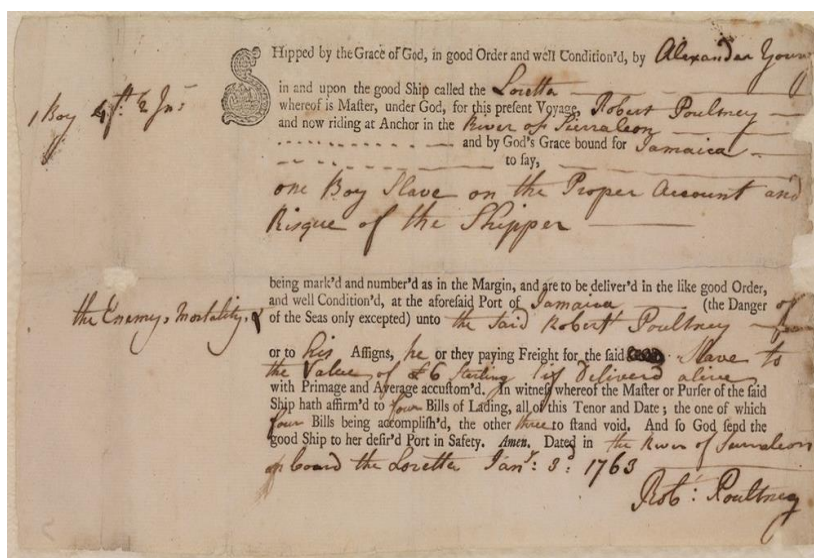 SHipped by the Grace of God, in good Order and well Condition'd, by Alexander Young
in and upon the good Ship called the Loretta
1 Boy 4ft 2 Ins
whereof is Master, under God, for this present Voyage, Robert Poultney
and now riding at Anchor in the River of Sierraleon
and by God's Grace bound for Jamaica
to say,
one Boy Slave on the Proper Account and
Risque of the Shipper
being mark'd and number'd as in the Margin, and are to be deliver'd in the like good Order,
and well Condition'd, at the aforesaid Port of Jamaica (the Danger of
the Enemy, Mortality, & of the Seas only excepted) unto the said Robert Poultney
or to his Assigns, he or they paying Freight for the said Slave to
the Value of £6 Sterling if Deliverd alive
with Primage and Average accustom'd. In witness whereof the Master or Purser of the said
Ship hath affirm'd to four Bills of Lading, all of this Tenor and Date; the one of which
four Bills being accomplish'd, the other three to stand void. And so God send the
good Ship to her desir'd Port in Safety. Amen. Dated in the River of Sierraleon
on board the Loretta Jany: 3d: 1763
Robt: Poultney